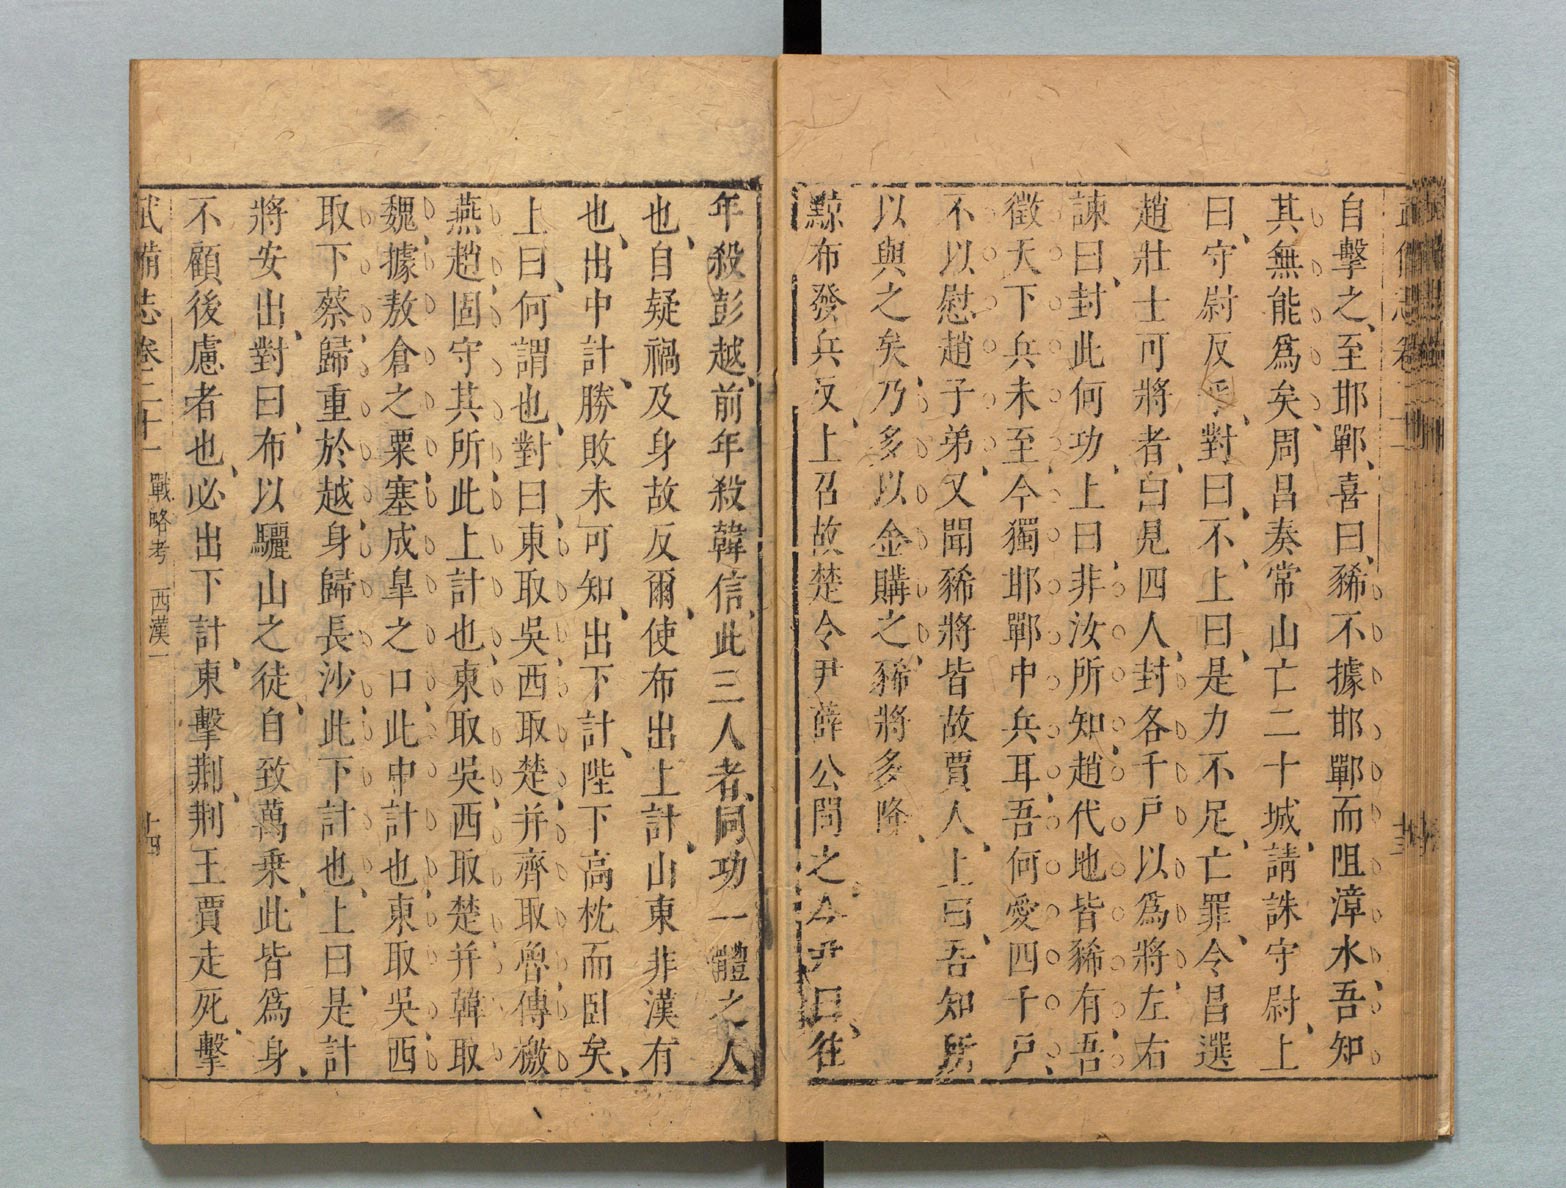 自擊之至邯鄲喜曰豨不據邯鄲而阻漳水吾知
其無能爲矣周昌奏常山亡二十城請誅守尉上
曰守尉反乎對曰不上曰是力不足亡罪令昌選
趙壯士可將者白見四人封各千戶以爲將左右
諫曰封此何功上曰非汝所知趙代地皆豨有吾
徵天下兵未至今獨邯鄲中兵耳吾何愛四千戶
不以慰趙子弟又聞豨將皆故賈人上曰吾知所
以與之矣乃多以金購之豨將多降
黥布發兵反上召故楚令尹薛公問之令尹曰往
年殺彭越前年殺韓信此三人者同功一體之人
也自疑禍及身故反爾使布出上計山東非漢有
也出中計勝敗未可知出下計陛下高枕而臥矣
上曰何謂也對曰東取吳西取楚并齊取魯傳檄
燕趙固守其所此上計也東取吳西取楚并韓取
魏據敖倉之粟塞成皐之口此中計也東取吳西
取下蔡歸重於越身歸長沙此下計也上曰是計
將安出對曰布以驪山之徒自致萬乘此皆爲身
不顧後慮者也必出下計東擊荆荆王賈走死擊
武備志卷二十一 戰略考 西漢一 十四